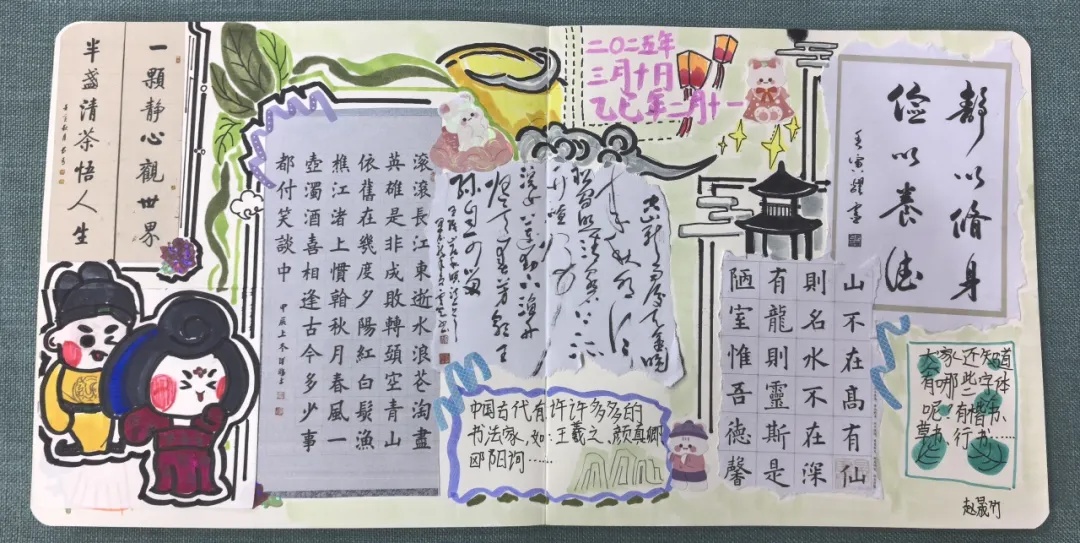 一顆靜心觀世界
半盏清茶悟人生
滾滾長江東逝水浪花淘盡
英雄是非成敗轉頭空青山
依舊在幾度夕陽紅白髮漁
樵江渚上慣看秋月春風一
壺濁酒喜相逢古今多少事
都付笑談中
空山新雨后天氣晚
孫自可留
二〇二五年
三月十日
乙巳年二月十一
中国古代有许许多多的
书法家,如:王羲之、颜真卿
欧阳询……
山不在高有仙
則名水不在深
有龍則靈斯是
陋室惟吾德馨
靜以脩身
儉以養德
壬寅
大家还知道
有哪些字体
呢?有楷书、
草书、行书……
赵晟竹